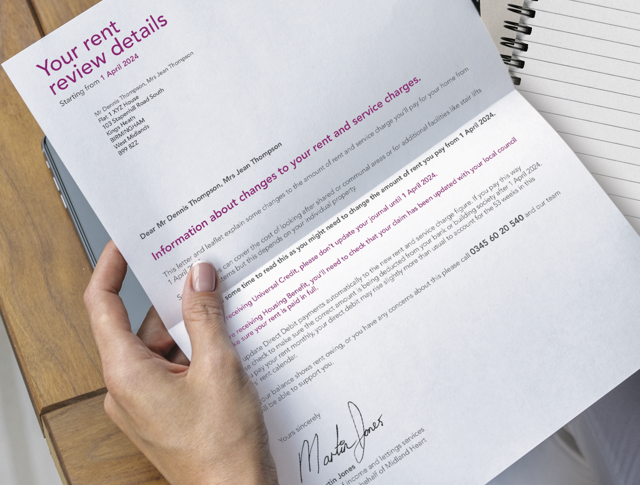 Your rent
review details
Starting from 1 April 2024
Mr Dennis Thompson, Mrs Jean Thompson
Flat 1 XYZ House
103 Stapenhill Road South
Kings Heath
BIRMINGHAM
West Midlands
B99 8ZZ
Dear Mr Dennis Thompson, Mrs Jean Thompson
Information about changes to your rent and service charges.
This letter and leaflet explain some changes to the amount of rent and service charge you'll pay for your home from
1 April
can cover the cost of looking after shared or communal areas or for additional facilities like stair lifts
but this depends on your individual property
some time to read this as you might need to change the amount of rent you pay from 1 April 2024.
receiving Universal Credit, please don't update your journal until 1 April 2024.
receiving Housing Benefit, you'll need to check that your claim has been updated with your local council
sure your rent is paid in full.
update Direct Debit payments automatically to the new rent and service charge figure. If you pay this way
check to make sure the correct amount is being deducted from your bank or building society after 1 April 2024.
pay your rent monthly, your direct debit may rise slightly more than usual to account for the 53 weeks in this
rent calendar.
our balance shows rent owing, or you have any concerns about this please call 0345 60 20 540 and our team
be able to support you.
Yours sincerely
Martin Jones
tin Jones
income and lettings services
behalf of Midland Heart